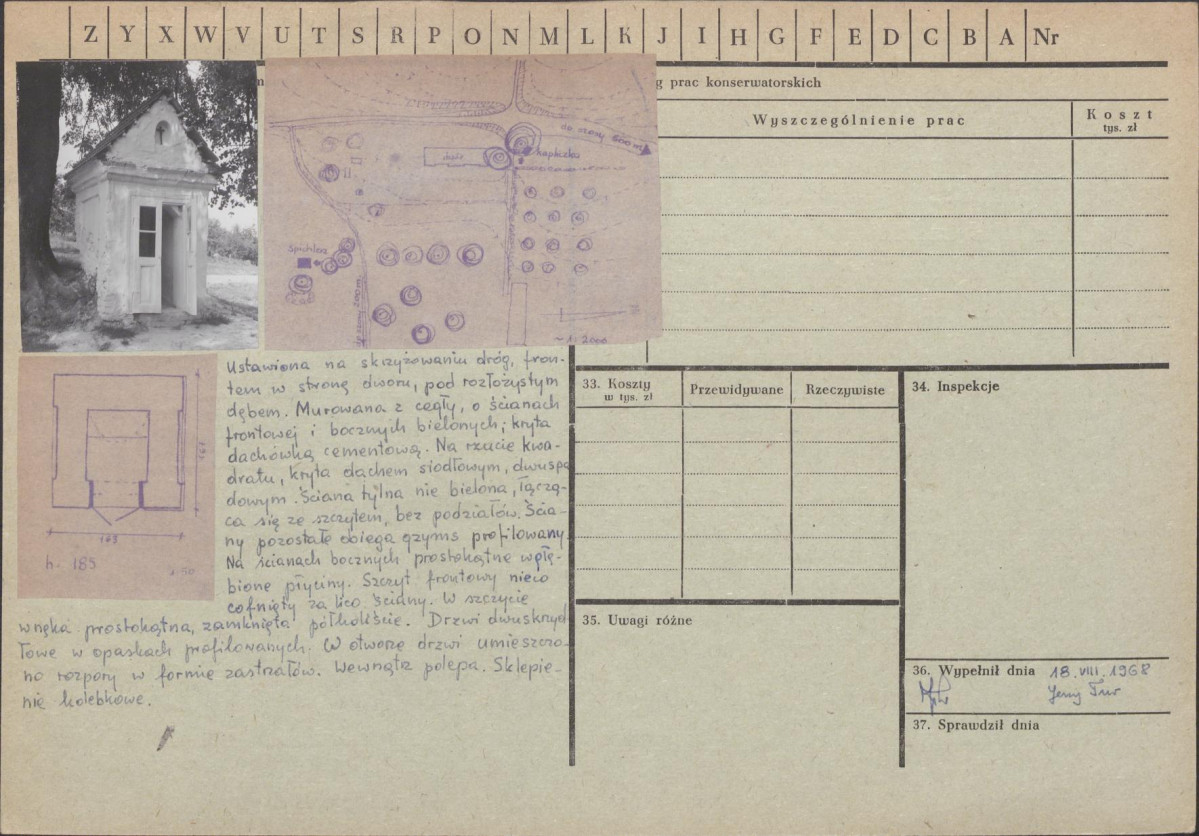 Z Y X W V U T S R P O N M L K J I H G F E D C B A Nr
g prac konserwatorskich
Wyszczególnienie prac
Koszt
tys. zł
do szosy 600 m
kapliczka
Spichlerz
do szosy 200 m
~ 1:2000
193
h. 185
1:50
Ustawiona na skrzyżowaniu dróg, fron-
tem w stronę dworu, pod rozłożystym
dębem. Murowana z cegły, o ścianach
frontowej i bocznych bielonych; kryta
dachówką cementową. Na rzucie kwa-
dratu, kryta dachem siodłowym, dwuspa
dowym. Ściana tylna nie bielona, łączą-
ca się ze szczytem, bez podziałów. Ścia-
ny pozostałe obiega gzyms profilowany.
Na ścianach bocznych prostokątne wgłę-
bione płyciny. Szczyt frontowy nieco
cofnięty za lico ściany. W szczycie
wnęka prostokątna, zamknięta półkoliście. Drzwi dwuskrzyd
łowe w opaskach profilowanych. W otworze drzwi umieszczo-
no rozpory w formie zastrzałów. Wewnątrz polepa. Sklepie-
nie kolebkowe.
33. Koszty
w tys. zł
Przewidywane
Rzeczywiste
34. Inspekcje
35. Uwagi różne
36. Wypełnił dnia 18.VIII.1968
37. Sprawdził dnia